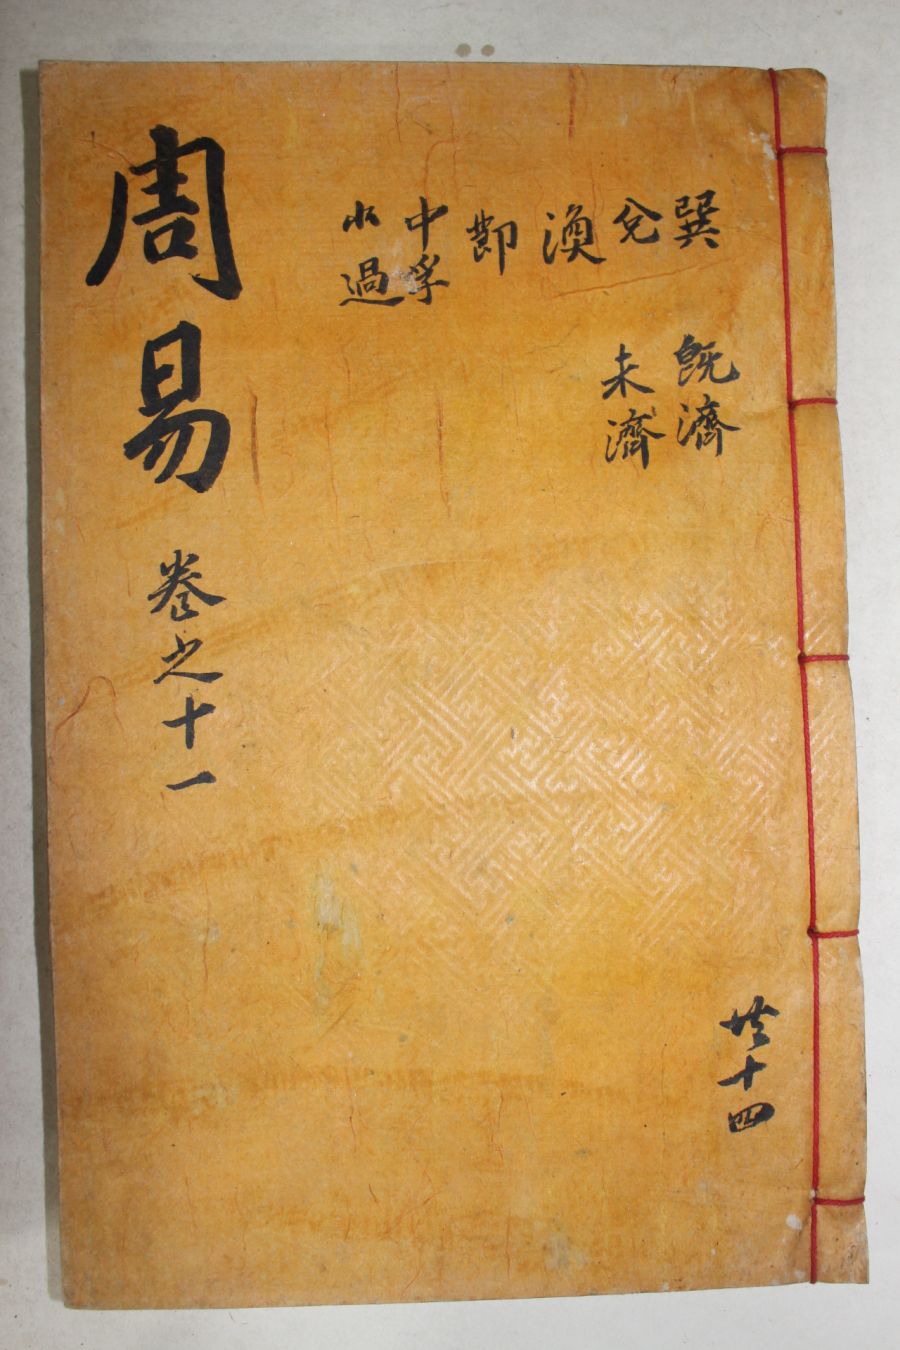 周易 卷之十一
巽
兊
渙
莭
中孚
小過
旣濟
未濟
共十四